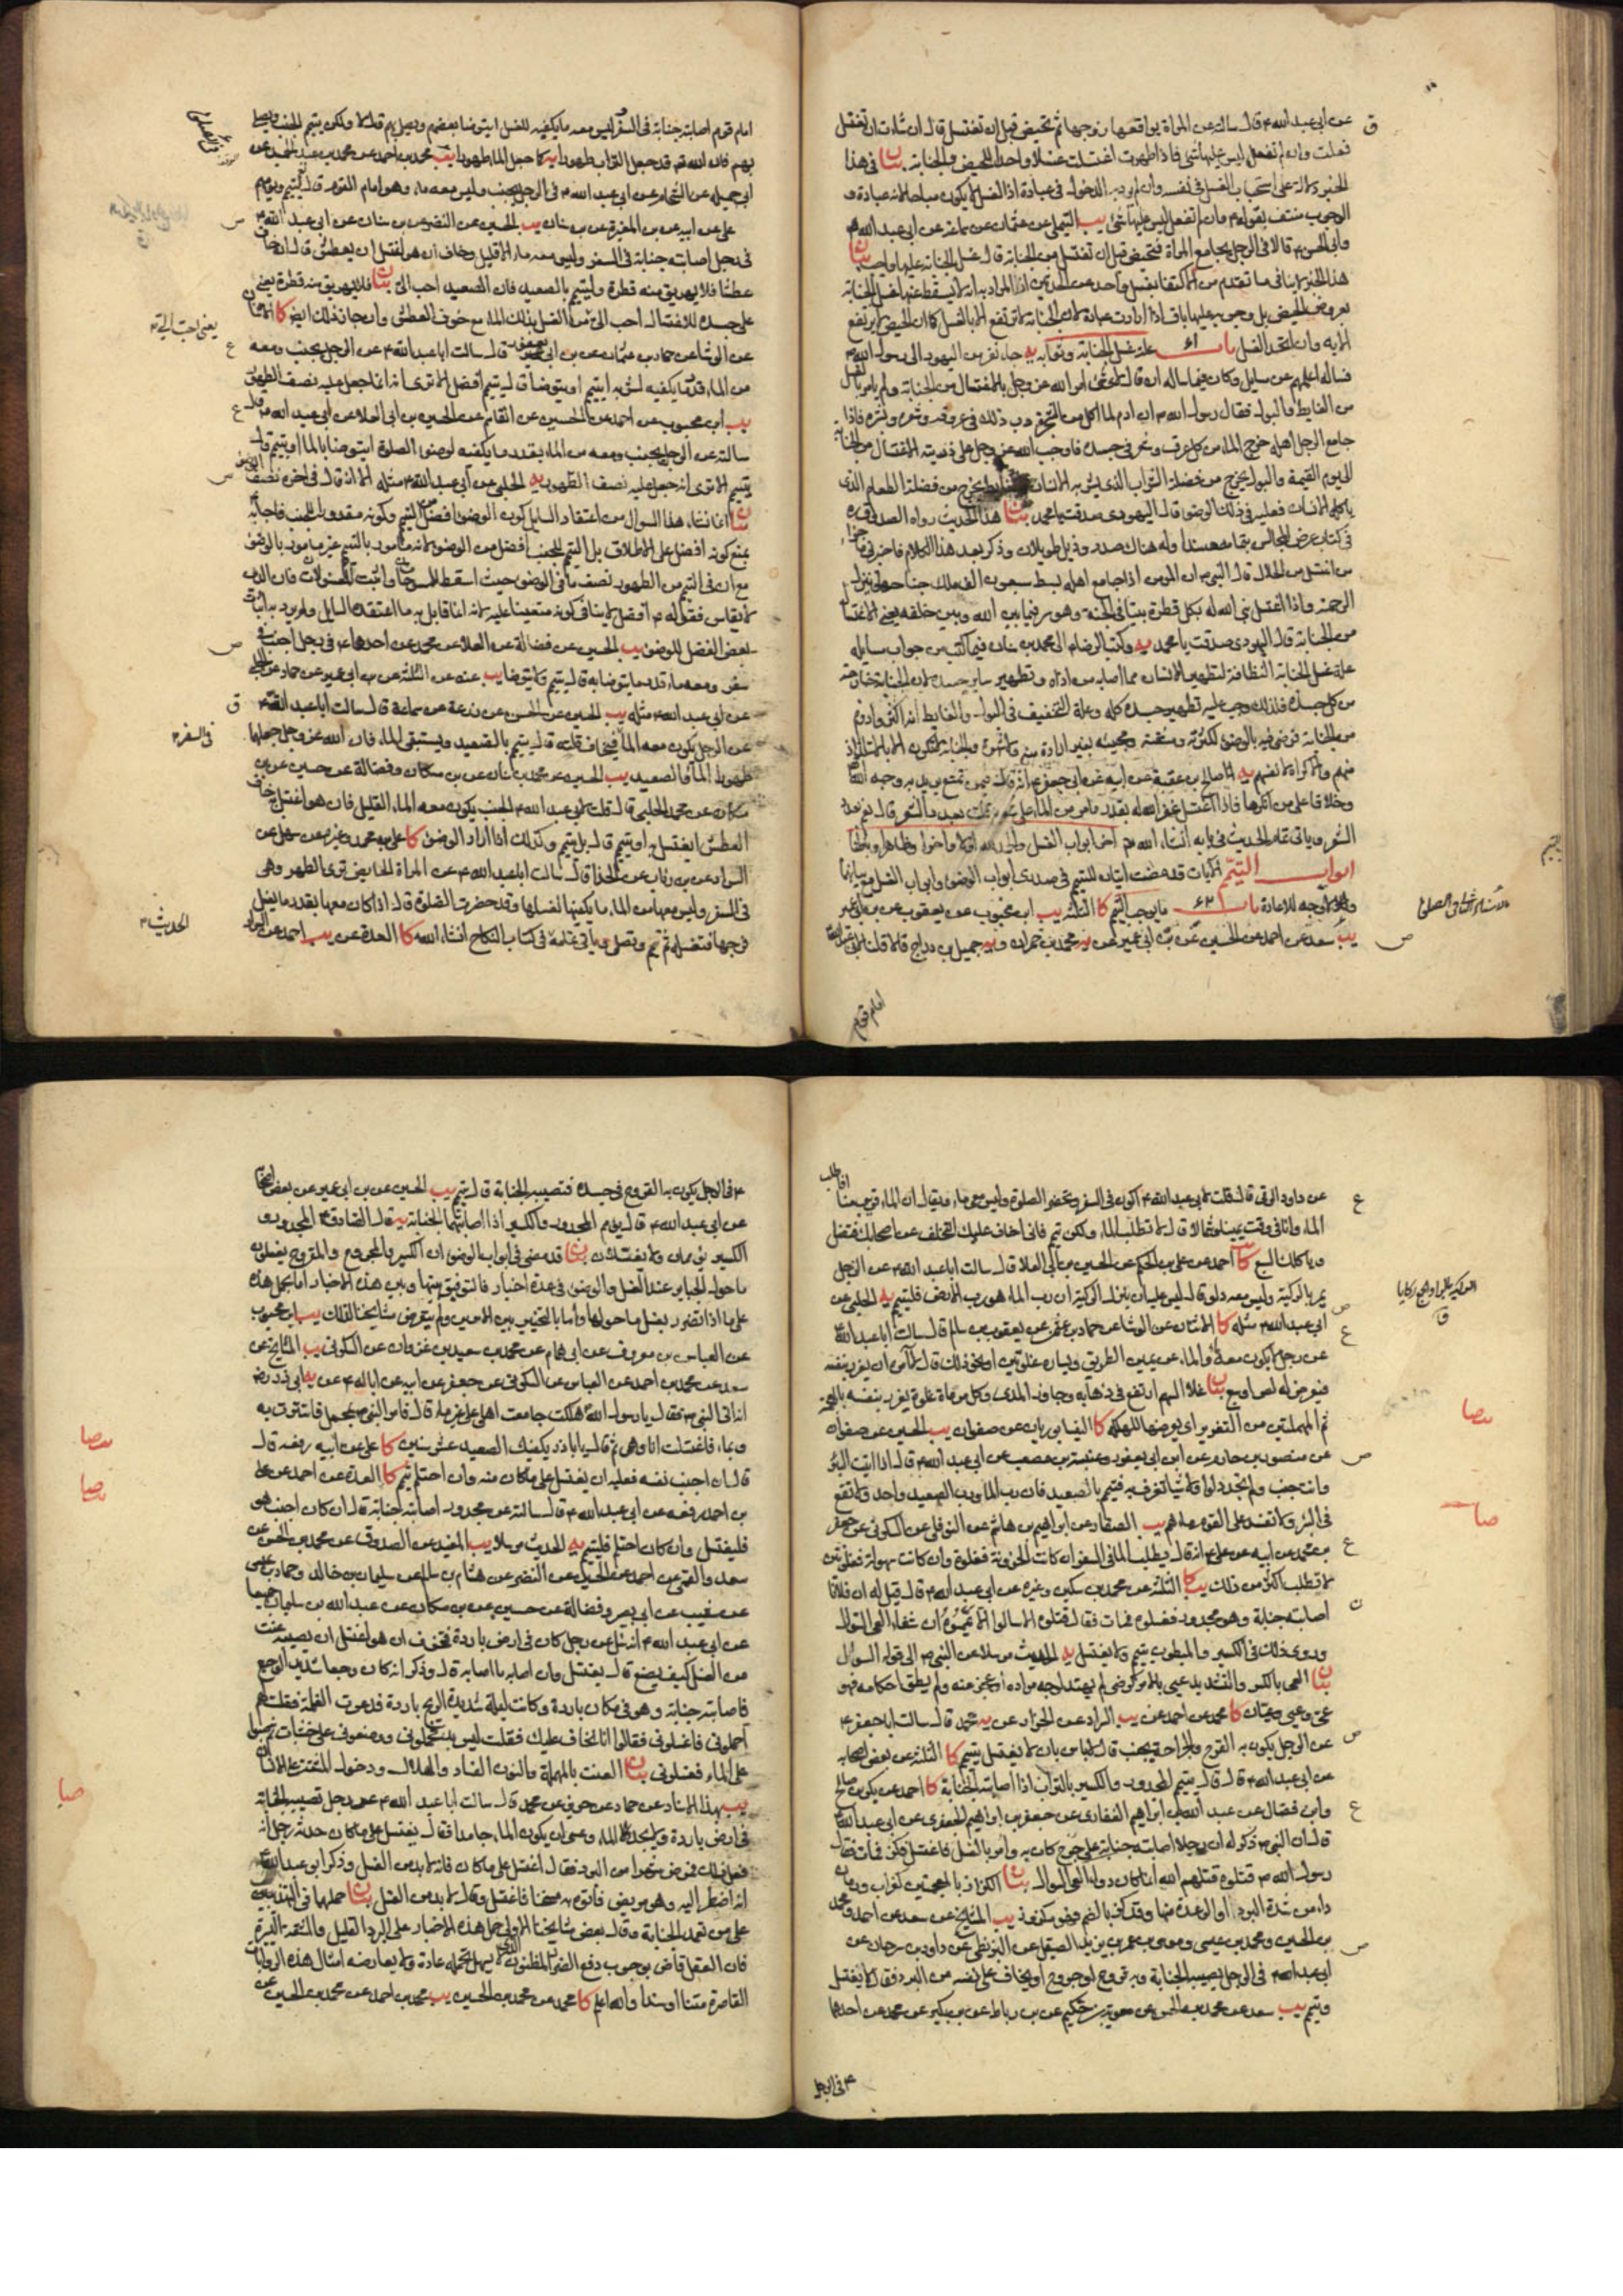 عن ابی عبد الله ۴ قال سالته عن المراة یواقعها زوجها ثم تحیض قبل ان تغتسل قال ان شاءت ان تغتسل
فعلت وان لم تفعل لیس علیها شی فاذا طهرت اغتسلت غسلا واحدا للحیض والجنابة بیان فی هذا
الخبر دلالة علی استحباب الغسل فی نفسه وان لم یرد به الدخول فی عبادة اذ الغسل لا یکون مباحا لانه عبادة و
الوجوب منتف بقوله ۴ وان لم تفعل لیس علیها شی یب التیملی عن عثمان عن سماعة عن ابی عبد الله
وابی الحسن ۴ قالا فی الرجل یجامع المراة فتحیض قبل ان تغتسل من الجنابة قال غسل الجنابة علیها واجب بیان
هذا الخبر لا ینافی ما تقدم من الاکتفاء بغسل واحد عن الحدثین اذ المراد به انه لا یسقط عنها غسل الجنابة
بعروض الحیض بل وجوبه علیها باق اذا ارادت عبادة لان الجنابة لا ترتفع الا بالغسل کما ان الحیض لا یرتفع
الا به وان اتحد الغسل باب ۶۱ علة غسل الجنابة وثوابه یه جاء نفر من الیهود الی رسول الله
فساله اعلمهم عن مسایل وکان فیما ساله ان قال لای شی امر الله عز وجل بالاغتسال من الجنابة ولم یامر بالغسل
من الغایط والبول فقال رسول الله ان ادم لما اکل من الشجرة دب ذلک فی عروقه وشعره وبشره فاذا
جامع الرجل اهله خرج الماء من کل عرق وشعرة فی جسده فاوجب الله عز وجل علی ذریته الاغتسال من الجنابة
الی یوم القیمة والبول یخرج من فضلة الشراب الذی یشربه الانسان والغایط یخرج من فضلة الطعام الذی
یاکله الانسان فعلیه فی ذلک الوضوء قال الیهودی صدقت یا محمد بیان هذا الحدیث رواه الصدوق ره
فی کتاب عرض المجالس بتمامه مسندا وله هناک صدر وذیل طویلان وذکر بعد هذا الکلام فاخبرنی ما جزاء
من اغتسل من الحلال قال النبی ان المومن اذا جامع اهله بسط سبعون الف ملک جناحه وتنزل
الرحمة واذا اغتسل بنی الله له بکل قطرة بیتا فی الجنة وهو سر فیما بین الله وبین خلقه یعنی الاغتسال
من الجنابة قال الیهودی صدقت یا محمد یه وکتب الرضا الی محمد بن سنان فیما کتب من جواب مسایله
علة غسل الجنابة النظافة لتطهیر الانسان مما اصابه من اذاه وتطهیر سایر جسده لان الجنابة خارجة
من کل جسده فلذلک وجب علیه تطهیر جسده کله وعلة التخفیف فی البول والغایط انه اکثر وادوم
من الجنابة فرضی فیه بالوضوء لکثرته ومشقته ومجیئه بغیر ارادة منه ولا شهوة والجنابة لا تکون الا بالاستلذاذ
منهم والاکراه لانفسهم یه صالح بن عقبة عن ابیه عن ابی جعفر
وخلافا علی من انکرها فاذا اغتسل غفر الله له بقدر ما مر من الماء علی شعره قلت بعدد الشعر قال نعم بعدد
الشعر ویاتی تمام الحدیث فی بابه انشاء الله اخر ابواب الغسل والحمد لله اولا واخرا وظاهرا وباطنا
ابواب التیمم الایات قد مضت ایتان للتیمم فی صدری ابواب الوضوء وابواب الغسل مع بیانهما
باب ۶۲ ما یوجب التیمم کا الثلثة یب ابن محبوب عن یعقوب عن بن ابی عمیر
یب سعد عن احمد عن الحسین عن بن ابی عمیر عن یه محمد بن حمران و یه جمیل بن دراج قالا قلنا لابی عبد الله
امام قوم
امام قوم اصابته جنابة فی السفر لیس معه ما یکفیه للغسل ایتوضا بعضهم ویصلی بهم قال لا ولکن یتیمم الجنب ویصلی
بهم فان الله قد جعل التراب طهورا یه کما جعل الماء طهورا یب محمد بن احمد عن محمد بن عبد الحمید عن
ابی جمیلة عن الشحام عن ابی عبد الله ۴ فی الرجل یجنب ولیس معه ماء وهو امام القوم قال یتیمم ویؤمهم
علی عن ابیه عن بن المغیرة عن بن سنان یب الحسین عن النضر عن بن سنان عن ابی عبد الله
فی رجل اصابته جنابة فی السفر ولیس معه ماء الا قلیل وخاف ان هو اغتسل ان یعطش قال ان خاف
عطشا فلا یهریق منه قطرة ولیتیمم بالصعید فان الصعید احب الی بیان فلا یهریق منه قطرة یعنی
علی جسده للاغتسال احب الی من الغسل بذلک الماء مع خوف العطش وان جاز ذلک ایضا کا الاثنان
عن الوشا عن حماد بن عثمان عن بن ابی یعفور قال سالت ابا عبد الله ۴ عن الرجل یجنب ومعه
من الماء قدر ما یکفیه لشربه ایتیمم او یتوضا قال یتیمم افضل الا تری انه انما جعل علیه نصف الطهور
یب ابن محبوب عن احمد عن الحسین عن القاسم عن الحسین بن ابی العلا عن ابی عبد الله ۴ قال
سالته عن الرجل یجنب ومعه من الماء بقدر ما یکفیه لوضوء الصلوة ایتوضا بالماء او یتیمم قال
یتیمم الا تری انه جعل علیه نصف الطهور یه الحلبی عن ابی عبد الله ۴ مثله الا انه قال فی اخره نصف الوضوء
بیان انما نشاء هذا السوال من اعتقاد السایل کون الوضوء افضل من التیمم وکونه مقدورا للجنب فاجابه
بمنع کونه افضل علی الاطلاق بل التیمم للجنب افضل من الوضوء لانه مامور بالتیمم غیر مامور بالوضوء
مع ان فی التیمم من الطهور نصف ما فی الوضوء حیث اسقط الممسوحات واثبت المغسولات فان الدین
لا یقاس فقوله ۴ افضل لا ینافی کونه متعینا علیه لانه انما قابل به ما اعتقده السایل ولم یرد به اثبات
بعض الفضل للوضوء یب الحسین عن فضالة عن العلا عن محمد عن احدهما ۴ فی رجل اجنب فی
سفر ومعه ماء قدر ما یتوضا به قال یتیمم ولا یتوضا یب عنه عن الثلثة عن بن ابی عمیر عن حماد عن الحلبی
عن ابی عبد الله ۴ مثله یب الحسین عن الحسن عن زرعة عن سماعة قال سالت ابا عبد الله ۴
عن الرجل یکون معه الماء فیخاف قلته قال یتیمم بالصعید ویستبقی الماء فان الله عز وجل جعلهما
طهورا الماء والصعید یب الحسین عن محمد بن سنان عن بن مسکان وفضالة عن حسین عن بن
مسکان عن محمد الحلبی قال قلت لابی عبد الله ۴ الجنب یکون معه الماء القلیل فان هو اغتسل به خاف
العطش ایغتسل به او یتیمم قال بل یتیمم وکذلک اذا اراد الوضوء کا علی بن محمد وغیره عن سهل عن
السراد عن بن رئاب عن الحذاء قال سالت ابا عبد الله ۴ عن المراة الحایض تری الطهر وهی
فی السفر ولیس معها من الماء ما یکفیها لغسلها وقد حضرت الصلوة قال اذا کان معها بقدر ما یغسل
فرجها فتغسله ثم تیمم وتصلی یاتی تمامه فی کتاب النکاح انشاء الله کا العدة عن یب احمد عن البزنطی
یعنی احب الی ۴
فی السفر ۴
الحدیث ۴
عن داود الرقی قال قلت لابی عبد الله ۴ اکون فی السفر وتحضر الصلوة ولیس معی ماء ویقال ان الماء قریب منا افاطلب
الماء وانا فی وقت یمینا وشمالا قال لا تطلب الماء ولکن تیمم فانی اخاف علیک التخلف عن اصحابک فتضل
ویاکلک السبع کا احمد عن علی بن الحکم عن الحسین بن ابی العلا قال سالت ابا عبد الله ۴ عن الرجل
یمر بالرکیة ولیس معه دلو قال لیس علیه ان ینزل الرکیة ان رب الماء هو رب الارض فلیتیمم یه الحلبی عن
ابی عبد الله ۴ مثله کا الاثنان عن الوشا عن حماد بن عثمن عن یعقوب بن سالم قال سالت ابا عبد الله
عن رجل لا یکون معه ماء والماء عن یمین الطریق ویساره غلوتین او نحو ذلک قال لا امره ان یغرر بنفسه
فیعرض له لص او سبع بیان غلا السهم ارتفع فی ذهابه وجاوز المدی وکل مرماة غلوة یغرر بنفسه بالمعجمة
ثم المهملتین من التغریر ای یعرضها للهلکة کا النیسابوریان عن صفوان یب الحسین عن صفوان
عن منصور بن حازم عن ابن ابی یعفور وعنبسة بن مصعب عن ابی عبد الله ۴ قال اذا اتیت البئر
وانت جنب ولم تجد دلوا ولا شیئا تغرف به فتیمم بالصعید فان رب الماء ورب الصعید واحد ولا تقع
فی البئر ولا تفسد علی القوم ماءهم یب الصفار عن ابراهیم بن هاشم عن النوفلی عن السکونی عن جعفر
بن محمد عن ابیه عن علی ۴ انه قال یطلب الماء فی السفر ان کانت الحزونة فغلوة وان کانت سهولة فغلوتین
لا تطلب اکثر من ذلک یب کا الثلثة عن محمد بن سکین وغیره عن ابی عبد الله ۴ قال قیل له ان فلانا
اصابته جنابة وهو مجدور فغسلوه فمات فقال قتلوه الا سالوا الا یمموه ان شفاء العی السوال
وروی ذلک فی الکسیر والمبطون یتیمم ولا یغتسل یه الحدیث مرسلا عن النبی الی قوله السؤال
بیان العی بالکسر والتشدید عیی بالامر کرضی لم یهتد لوجه مراده او عجز عنه ولم یطق احکامه فهو
عی وعیی وعیان کا محمد عن احمد عن یب السراد عن الخراز عن یه محمد قال سالت ابا جعفر ۴
عن الرجل یکون به القرح والجراحة یجنب قال لا باس بان لا یغتسل یتیمم کا الثلثة عن بعض اصحابه
عن ابی عبد الله ۴ قال قال یتیمم المجدور والکسیر بالتراب اذا اصابته الجنابة کا احمد عن بکر بن صالح
وابن فضال عن عبد الله بن ابراهیم الغفاری عن جعفر بن ابراهیم الجعفری عن ابی عبد الله
قال ان النبی ذکر له ان رجلا اصابته جنابة علی جرح کان به وامر بالغسل فاغتسل فکز فمات فقال
رسول الله قتلوه قتلهم الله انما کان دواء العی السوال بیان الکزاز بالمعجمتین کغراب ورمان
داء من شدة البرد او الرعدة منها وقد کز بالضم فهو مکزوز یب المشایخ عن سعد عن احمد ومحمد
بن الحسین ومحمد بن عیسی وموسی بن عمر بن یزید الصیقل عن البزنطی عن داود بن سرحان عن
ابی عبد الله ۴ فی الرجل تصیبه الجنابة وبه قروح او جروح او یخاف علی نفسه من البرد فقال لا یغتسل
ویتیمم یب سعد عن محمد بن الحسن عن معویة بن حکیم عن بن رباط عن بن بکیر عن محمد عن احدهما
۴ فی الرجل
۴ فی الرجل یکون به القروح فی جسده فتصیبه الجنابة قال یتیمم یب الحسین عن بن ابی عمیر عن بعض اصحابنا
عن ابی عبد الله ۴ قال یؤمم المجدور والکسیر اذا اصابتهما الجنابة یه قال الصادق ۴ المجدور و
الکسیر یؤممان ولا یغتسلان بیان قد مضی فی ابواب الوضوء ان الکسیر والمجروح والمقروح یغسلون
ما حول الجبایر عند الغسل والوضوء فی عدة اخبار فالتوفیق بینها وبین هذه الاخبار اما بحمل هذه
علی ما اذا تضرر بغسل ما حولها واما بالتخییر بین الامرین ولم یتعرض مشایخنا لذلک یب ابن محبوب
عن العباس بن معروف عن ابی همام عن محمد بن سعید بن غزوان عن السکونی یب المشایخ عن
سعد عن محمد بن احمد عن العباس عن السکونی عن جعفر عن ابیه عن ابائه ۴ عن یه ابی ذر رض
انه اتی النبی فقال یا رسول الله هلکت جامعت اهلی علی غیر ماء قال فامر النبی بمحمل فاستترت به
وبماء فاغتسلت انا وهی ثم قال یا اباذر یکفیک الصعید عشر سنین کا علی عن ابیه رفعه قال
قال ان اجنب نفسه فعلیه ان یغتسل علی ما کان منه وان احتلم تیمم کا العدة عن احمد عن علی
بن احمد رفعه عن ابی عبد الله ۴ قال سالته عن مجدور اصابته جنابة قال ان کان اجنب هو
فلیغتسل وان کان احتلم فلیتیمم یه الحدیث مرسلا یب المفید عن الصدوق عن محمد بن الحسن عن
سعد والقمی عن احمد عن الحسین عن النضر عن هشام بن سالم عن سلیمان بن خالد وحماد بن عیسی
عن شعیب عن ابی بصیر وفضالة عن حسین عن بن مسکان عن عبد الله بن سلیمان جمیعا
عن ابی عبد الله ۴ انه سئل عن رجل کان فی ارض باردة فتخوف ان هو اغتسل ان یصیبه عنت
من الغسل کیف یصنع قال یغتسل وان اصابه ما اصابه قال وذکر انه کان وجعا شدید الوجع
فاصابته جنابة وهو فی مکان باردة وکانت لیلة شدیدة الریح باردة فدعوت الغلمة فقلت لهم
احملونی فاغسلونی فقالوا انا نخاف علیک فقلت لیس بد فحملونی ووضعونی علی خشبات ثم صبوا
علی الماء فغسلونی بیان العنت بالمهملة والنون الفساد والهلاک ودخول المشقة علی الانسان
یب بهذا الاسناد عن حماد عن حریز عن محمد قال سالت ابا عبد الله ۴ عن رجل تصیبه الجنابة
فی ارض باردة ولا یجد الماء وعسی ان یکون الماء جامدا فقال یغتسل علی ما کان حدثه رجل انه
فعل ذلک فمرض شهرا من البرد فقال اغتسل علی ما کان فانه لا بد من الغسل وذکر ابو عبد الله
انه اضطر الیه وهو مریض فاتوه به مسخنا فاغتسل وقال لا بد من الغسل بیان حملهما فی التهذیبین
علی من تعمد الجنابة وقال بعض مشایخنا الاولی حمل هذه الاخبار علی البرد القلیل والمشقة الیسیرة
فان العقل قاض بوجوب دفع الضرر المظنون الذی لا یسهل تحمله عادة ولا یعارضه امثال هذه الروایات
القاصرة متنا او سندا والله اعلم کا محمد عن محمد بن الحسین یب محمد بن احمد عن محمد بن الحسین عن